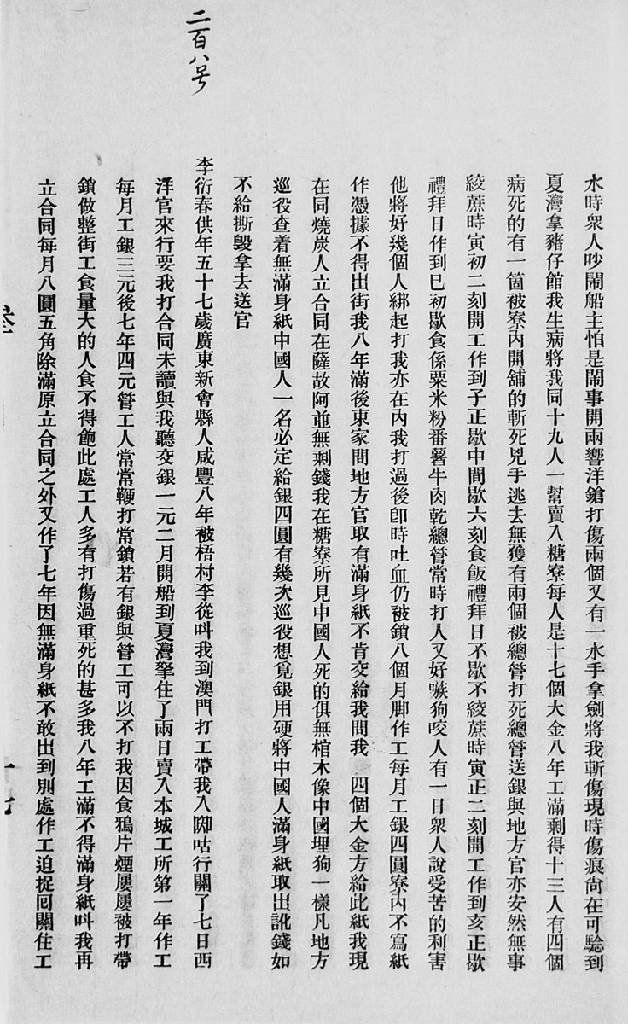 二百八号
水時眾人吵鬧船主怕是鬧事開兩響洋鎗打傷兩個又有一水手拿劍將我斬傷現時傷痕尚在可驗到
夏灣拿豬仔館我生病將我同十九人一幫賣入糖寮每人是十七個大金八年工滿剩得十三人有四個
病死的有一箇被寮內開舖的斬死兇手逃去無獲有兩個被總管打死總管送銀與地方官亦安然無事
絞蔗時寅初二刻開工作到子正歇中間歇六刻食飯禮拜日不歇不絞蔗時寅正二刻開工作到亥正歇
禮拜日作到巳初歇食係粟米粉番薯牛肉乾總管常時打人又好嗾狗咬人有一日眾人說受苦的利害
他將好幾個人綁起打我亦在內我打過後即時吐血仍被鎖八個月腳作工每月工銀四圓寮內不寫紙
作憑據不得出街我八年滿後東家問地方官取有滿身紙不肯交給我問我 四個大金方給此紙我現
在同燒炭人立合同在薩故阿並無剩錢我在糖寮所見中國人死的俱無棺木像中國埋狗一樣凡地方
巡役查着無滿身紙中國人一名必定給銀四圓有幾次巡役想覓銀用硬將中國人滿身紙取出訛錢如
不給撕毀拿去送官
李衍春供年五十七歲廣東新會縣人咸豐八年被梧村李從叫我到澳門打工帶我入㖞咕行關了七日西
洋官來行要我打合同未讀與我聽交銀一元二月開船到夏灣拏住了兩日賣入本城工所第一年作工
每月工銀三元後七年四元管工人常常鞭打常鎖若有銀與管工可以不打我因食鴉片煙屢屢被打帶
鎖做整街工食量大的人食不得飽此處工人多有打傷過重死的甚多我八年工滿不得滿身紙叫我再
立合同每月八圓五角除滿原立合同之外又作了七年因無滿身紙不敢出到別處作工迫捉回關住工
十七